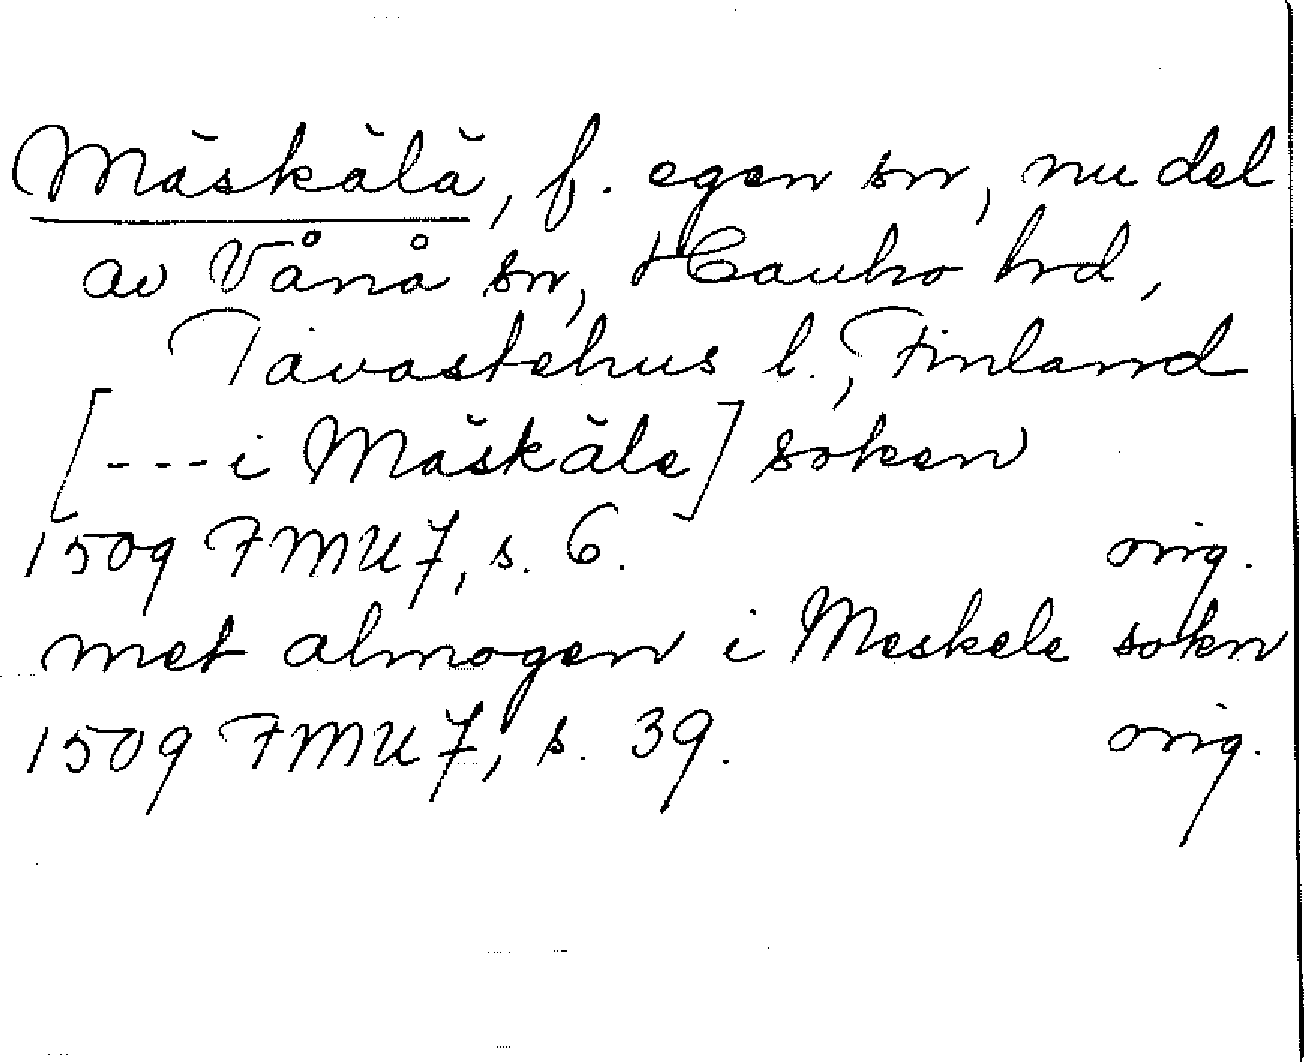 Mäskälä, f. egen sn, nu del
av Vånå sn, Hauho hd,
Tavastehus l., Finland
[---i Mäskäle] soken
1509 FMU 7, s. 6. orig.
met almogen i Meskele sokn
1509 FMU 7, s. 39. orig.